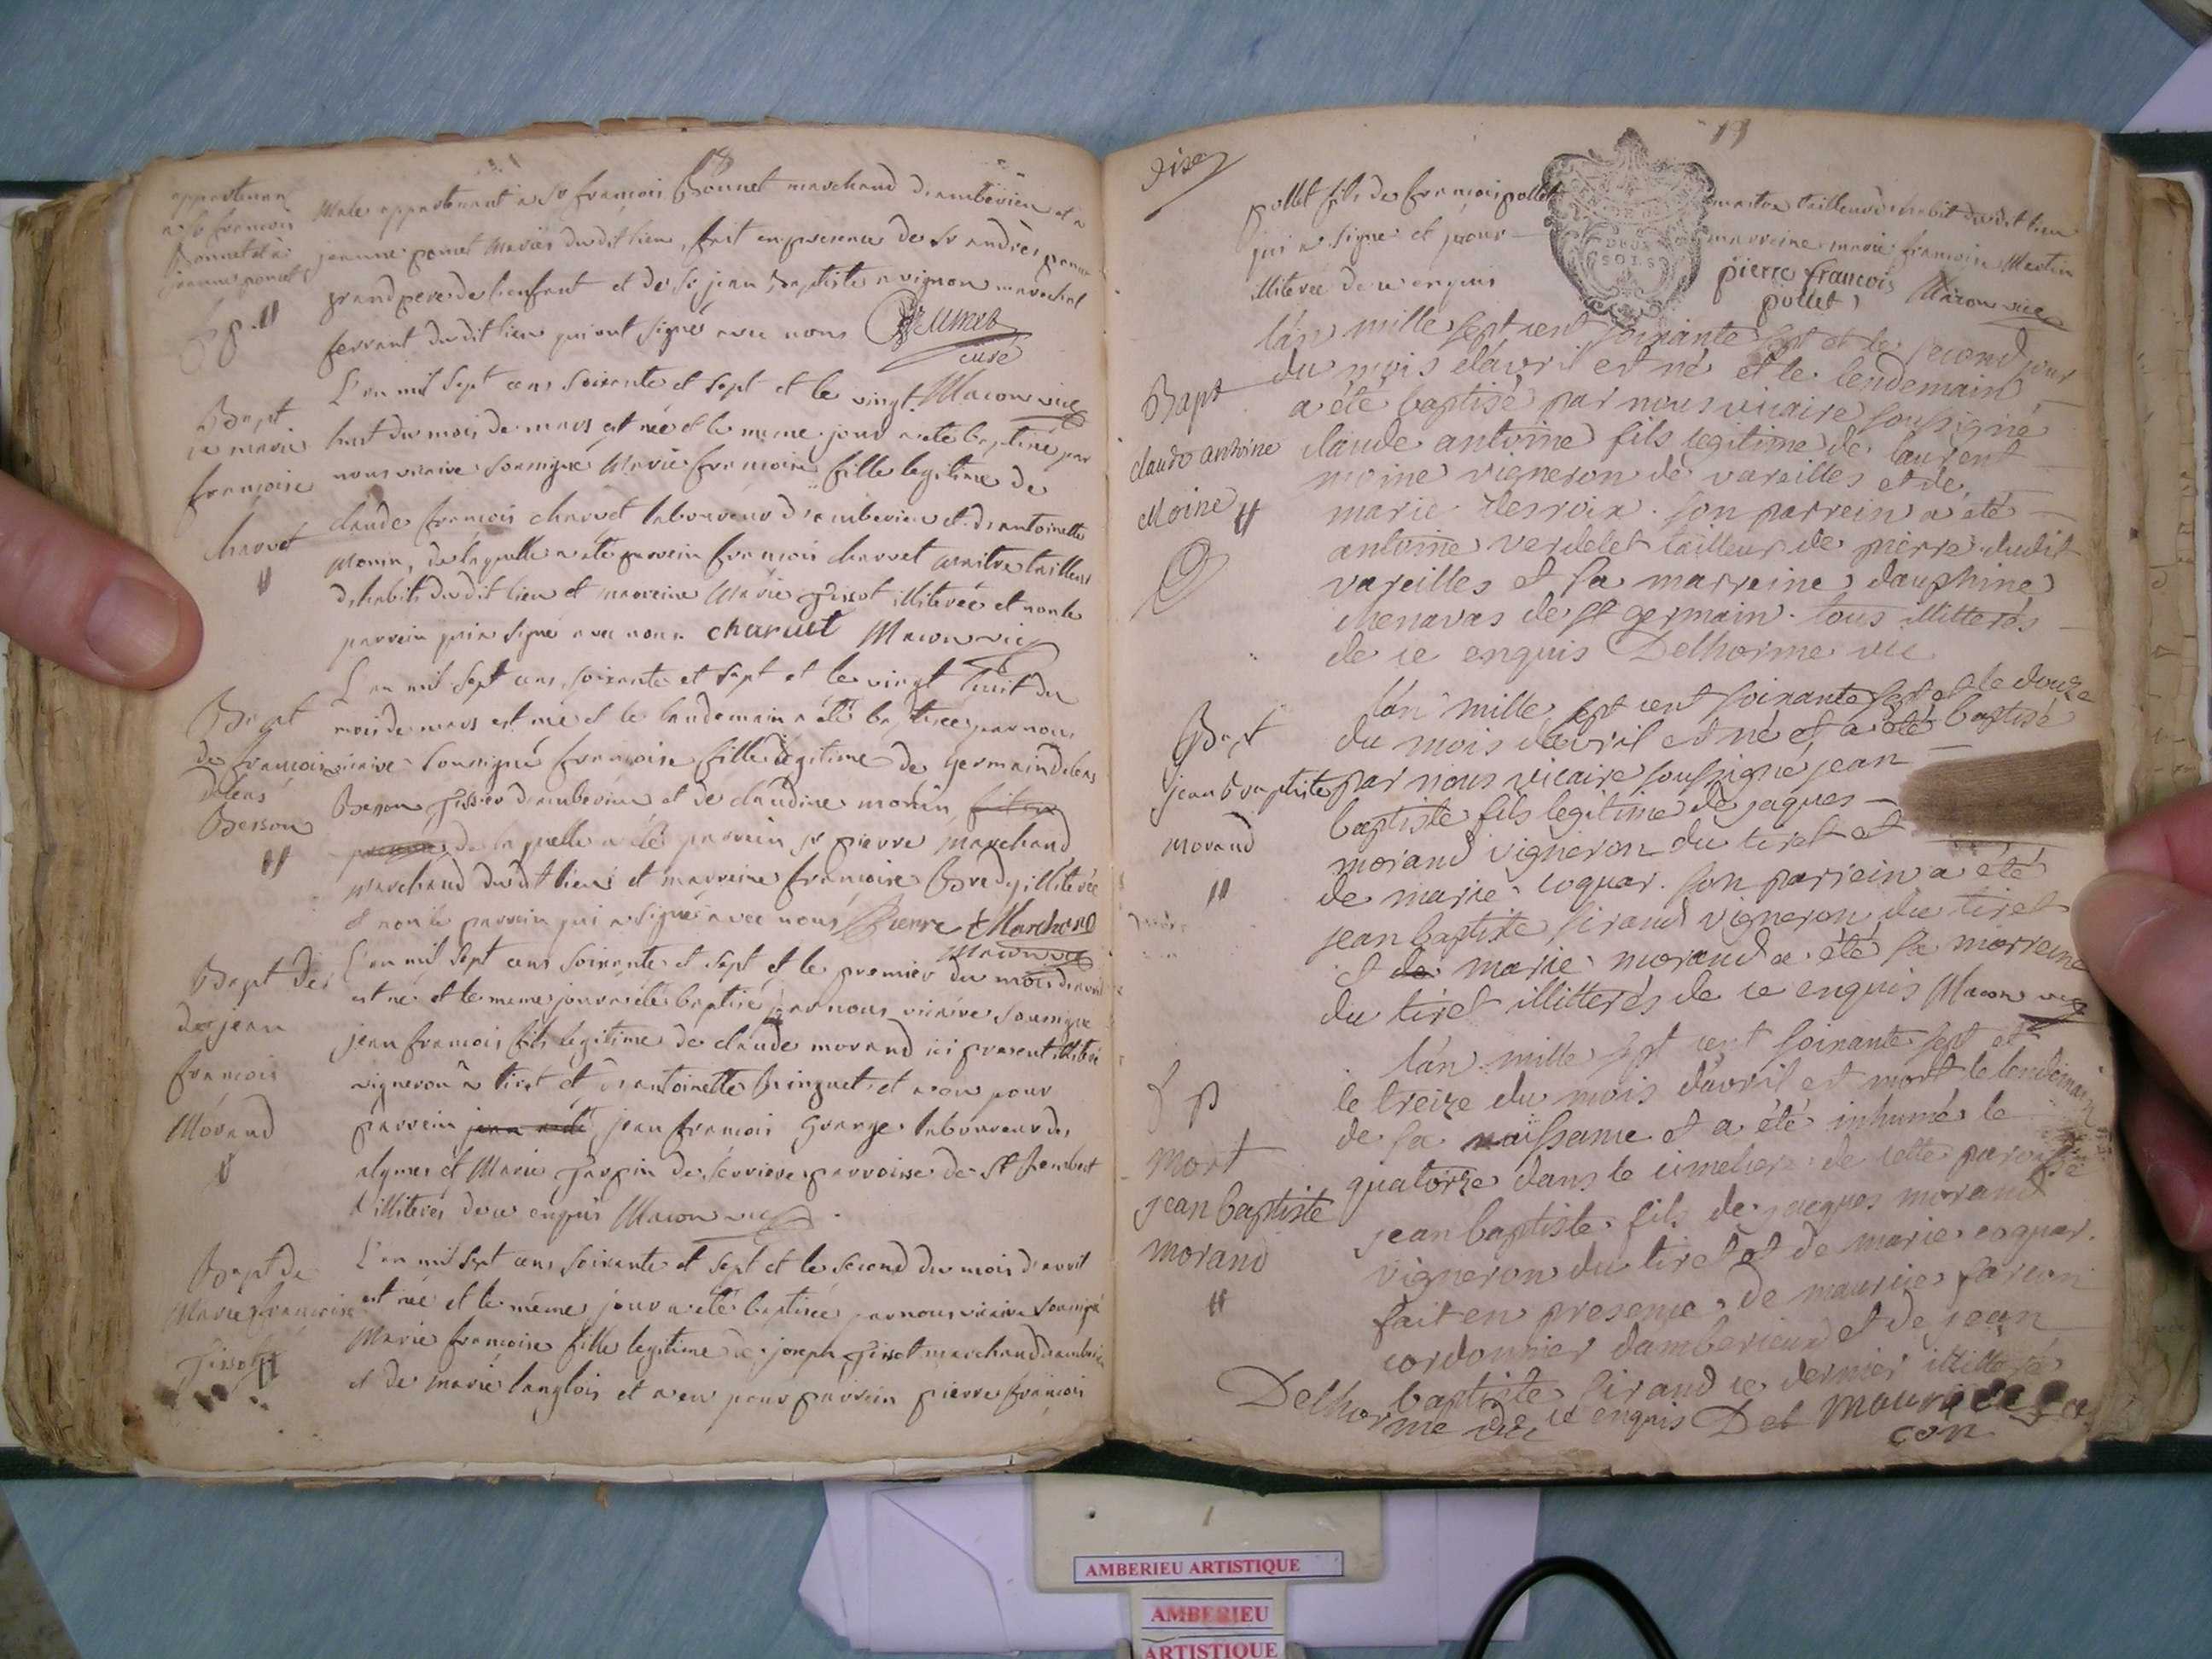 18
appartenan
a sr francois
Bonnet et a
jeanne ponet
male appartenant a sr francois Bonnet marchand d'amberieu et a
jeanne ponet mariés dudit lieu, fait en presence de sr andré ponet
grand pere de l'enfant et de sr jean Baptiste avignon marechal
ferrant dudit lieu qui ont signé avec nous
curé
Macon vic
Bapt
de marie
françoise
charvet
L'an mil sept cens soixante et sept et le vingt
huit du mois de mars est née et le meme jour a eté baptisée par
nous vicaire soussigné Marie françoise fille legitime de
claude francois charvet laboureur d'amberieu et d'antoinette
monin, de laquelle a eté parrein francois charvet maitre tailleur
d'habits dudit lieu et marreine Marie Tissot illiterée et non le
parrein qui a signé avec nous charuet Macon vic
Bapt
de francoise
delens
Besson
L'an mil sept cens soixante et sept et le vingt huit du
mois de mars est née et le landemain a été baptisée par nous
vicaire soussigné françoise fille légitime de Germain delens
Besson Tissier d'amberieu et de claudine monin
de laquelle a eté parrein sr pierre marchand
marchand dudit lieu et marreine francoise Bredy illiterée
et non le parrein qui a signé avec nous Pierre Marchand
Macon vic
Bapt de
de jean
francois
Morand
L'an mil sept cens soixante et sept et le premier du mois d'avril
est né et le meme jour a été baptisé par nous vicaire soussigné
jean francois fils legitime de claude morand ici present illiteré
vigneron a tiret et d'antoinette et a eu pour
parrein jean francois Grange laboureur des
alymes et Marie de serriere parroisse de st rambert
illiteres de ce enquis Macon vic
Bapt de
Marie françoise
Tissot
L'an mil sept cens soixante et sept et le second du mois d'avril
est née et le même jour a eté baptisée par nous vicaire soussigné
Marie francoise fille legitime de joseph Tissot marchand d'amberieu
et de marie langlois et a eu pour parrein pierre francois
19
dixe
pollet fils de francois pollet maitre tailleur d'habit dudit lieu
qui a signé et pour marreine marie francoise Martin
illiterée de ce enquis pierre francois
pollet Macon vic
DEUX
SOLS
Bapt
claude antoine
Moine
l'an mille sept cent soixante sept et le second jour
du mois d'avril est né et le lendemain
a été baptisé par nous vicaire soussigné
claude antoine fils legitime de laurent
moine vigneron de vareilles et de
marie desroix. son parrein a été
antoine verdelet tailleur de pierre dudit
vareilles et sa marreine dauphine
chenavas de st germain. tous illitterés
de ce enquis Delhorme vic
Bapt
jean baptiste
morand
l'an mille sept cent soixante sept et le douze
du mois d'avril est né et a été baptisé
par nous vicaire soussigné jean
baptiste fils legitime de jaques
morand vigneron du tiret et
de marie coquar. son parrein a été
jean baptiste sirand vigneron du tiret
et de marie morand a été sa marreine
du tiret illitterés de ce enquis Macon vic
mort
jean baptiste
morand
l'an mille sept cent soixante sept et
le treize du mois d'avril est mort le lendemain
de sa naissance et a été inhumé le
quatorze dans le cimetiere de cette paroisse
jean baptiste fils de jacques morand
vigneron du tiret et de marie coquar.
fait en presence de maurice farcon
cordonnier d'amberieux et de jean
baptiste sirand ce dernier illitteré
de ce enquis Del maurice far
con
Delhorme vic
AMBERIEU ARTISTIQUE
AMBERIEU
ARTISTIQUE